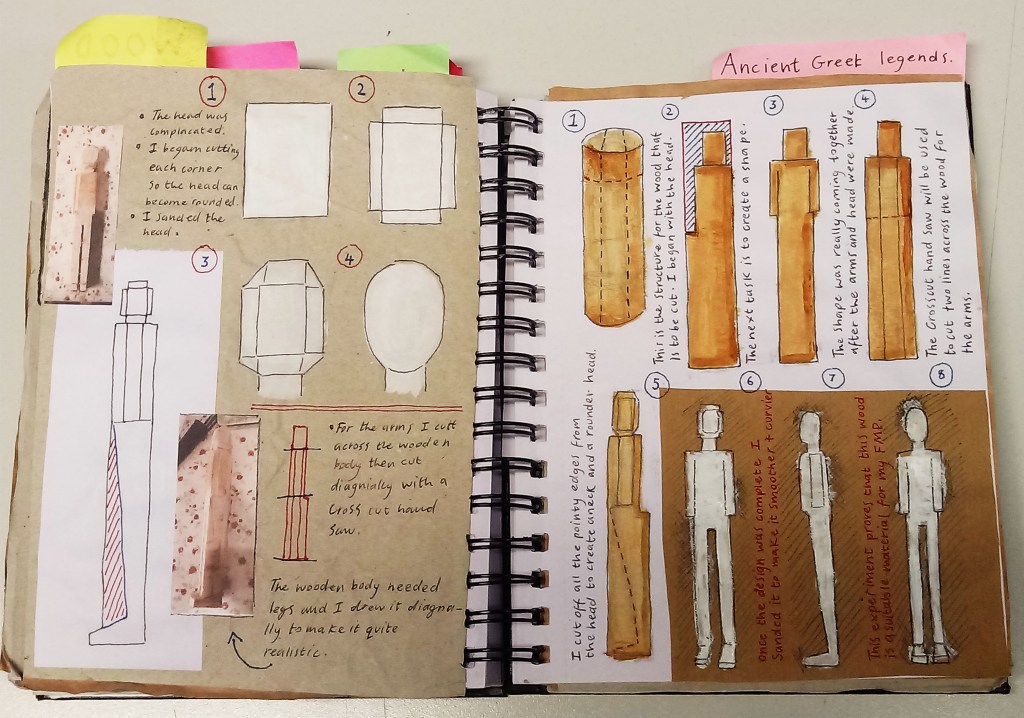 WOOD
Ancient Greek legends.
1
2
• The head was
complacated.
• I began cutting
each corner
so the head can
become rounded.
• I sanded the
head.
3
4
• For the arms I cutt
across the wooden
body then cut
diagnially with a
cross cut hand
saw.
The wooden body needed
legs and I drew it diagna-
lly to make it quite
realistic.
1
2
3
4
This is the structure for the wood that
is to be cut. I began with the head.
The next task is to create a shape.
The shape was really coming together
after the arms and head were made.
The Crosscut hand saw will be used
to cut two lines across the wood for
the arms.
5
6
7
8
I cut off all the pointy edges from
the head to create a neck and a rounder head.
Once the design was complete I
Sanded it to make it smoother + curvier
This experiment proves that this wood
is a suitable material for my FMP.